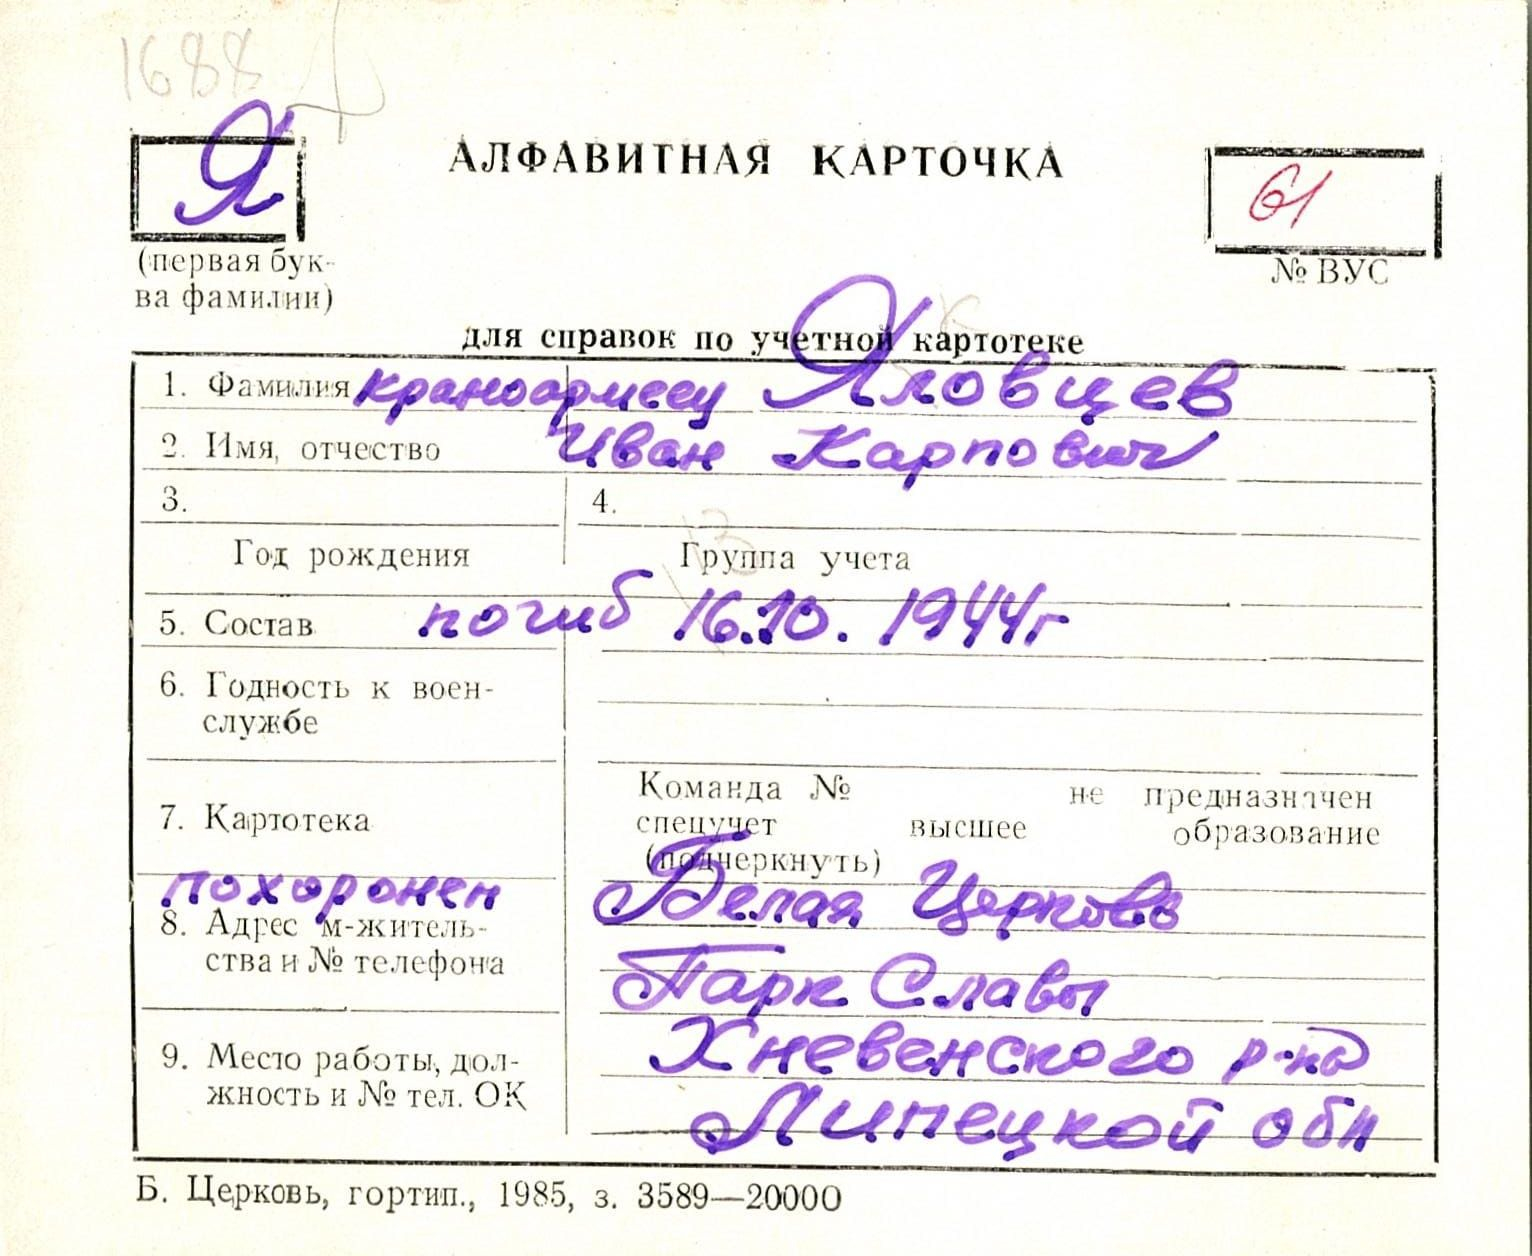 1688
Я
АЛФАВИТНАЯ КАРТОЧКА
61
(первая бук-
ва фамилии)
№ ВУС
для справок по учетной картотеке
1. Фамилия краноармеец Яловцев
2. Имя, отчество Иван Карпович
3. 4.
Год рождения Группа учета
5. Состав погиб 16.10. 1944г
6. Годность к воен-
службе
Команда № не предназначен
7. Картотека спецучет высшее образование
(подчеркнуть)
похоронен Белая Церковь
8. Адрес м-житель-
ства и № телефона
Парк Славы
Хневенского р-на
9. Место работы, дол-
жность и № тел. ОК
Липецкой обл
Б. Церковь, гортип., 1985, з. 3589—20000